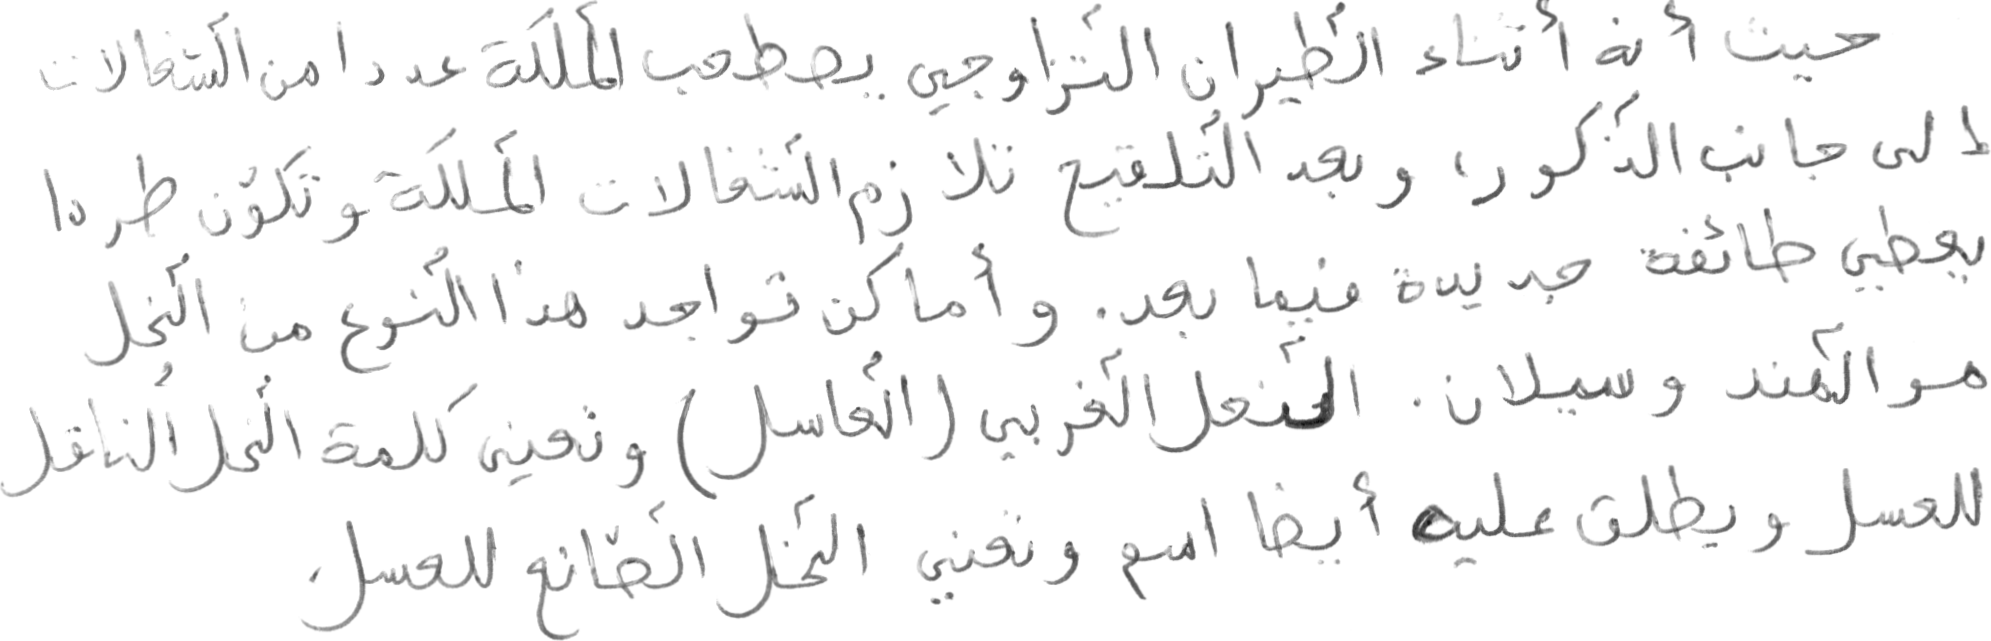 حيث أنه أثناء الطيران التزاوجي يصطحب الملكة عددا من الشغالات
إلى جانب الذكور، وبعد التلقيح تلازم الشغالات الملكة وتكوّن طردا
يعطي طائفة جديدة فيما بعد. وأماكن تواجد هذا النوع من النحل
هو الهند وسيلان. النحل الغربي (العاسل) وتعني كلمة النحل الناقل
للعسل ويطلق عليه أيضا اسم وتعني النحل الصّانع للعسل.